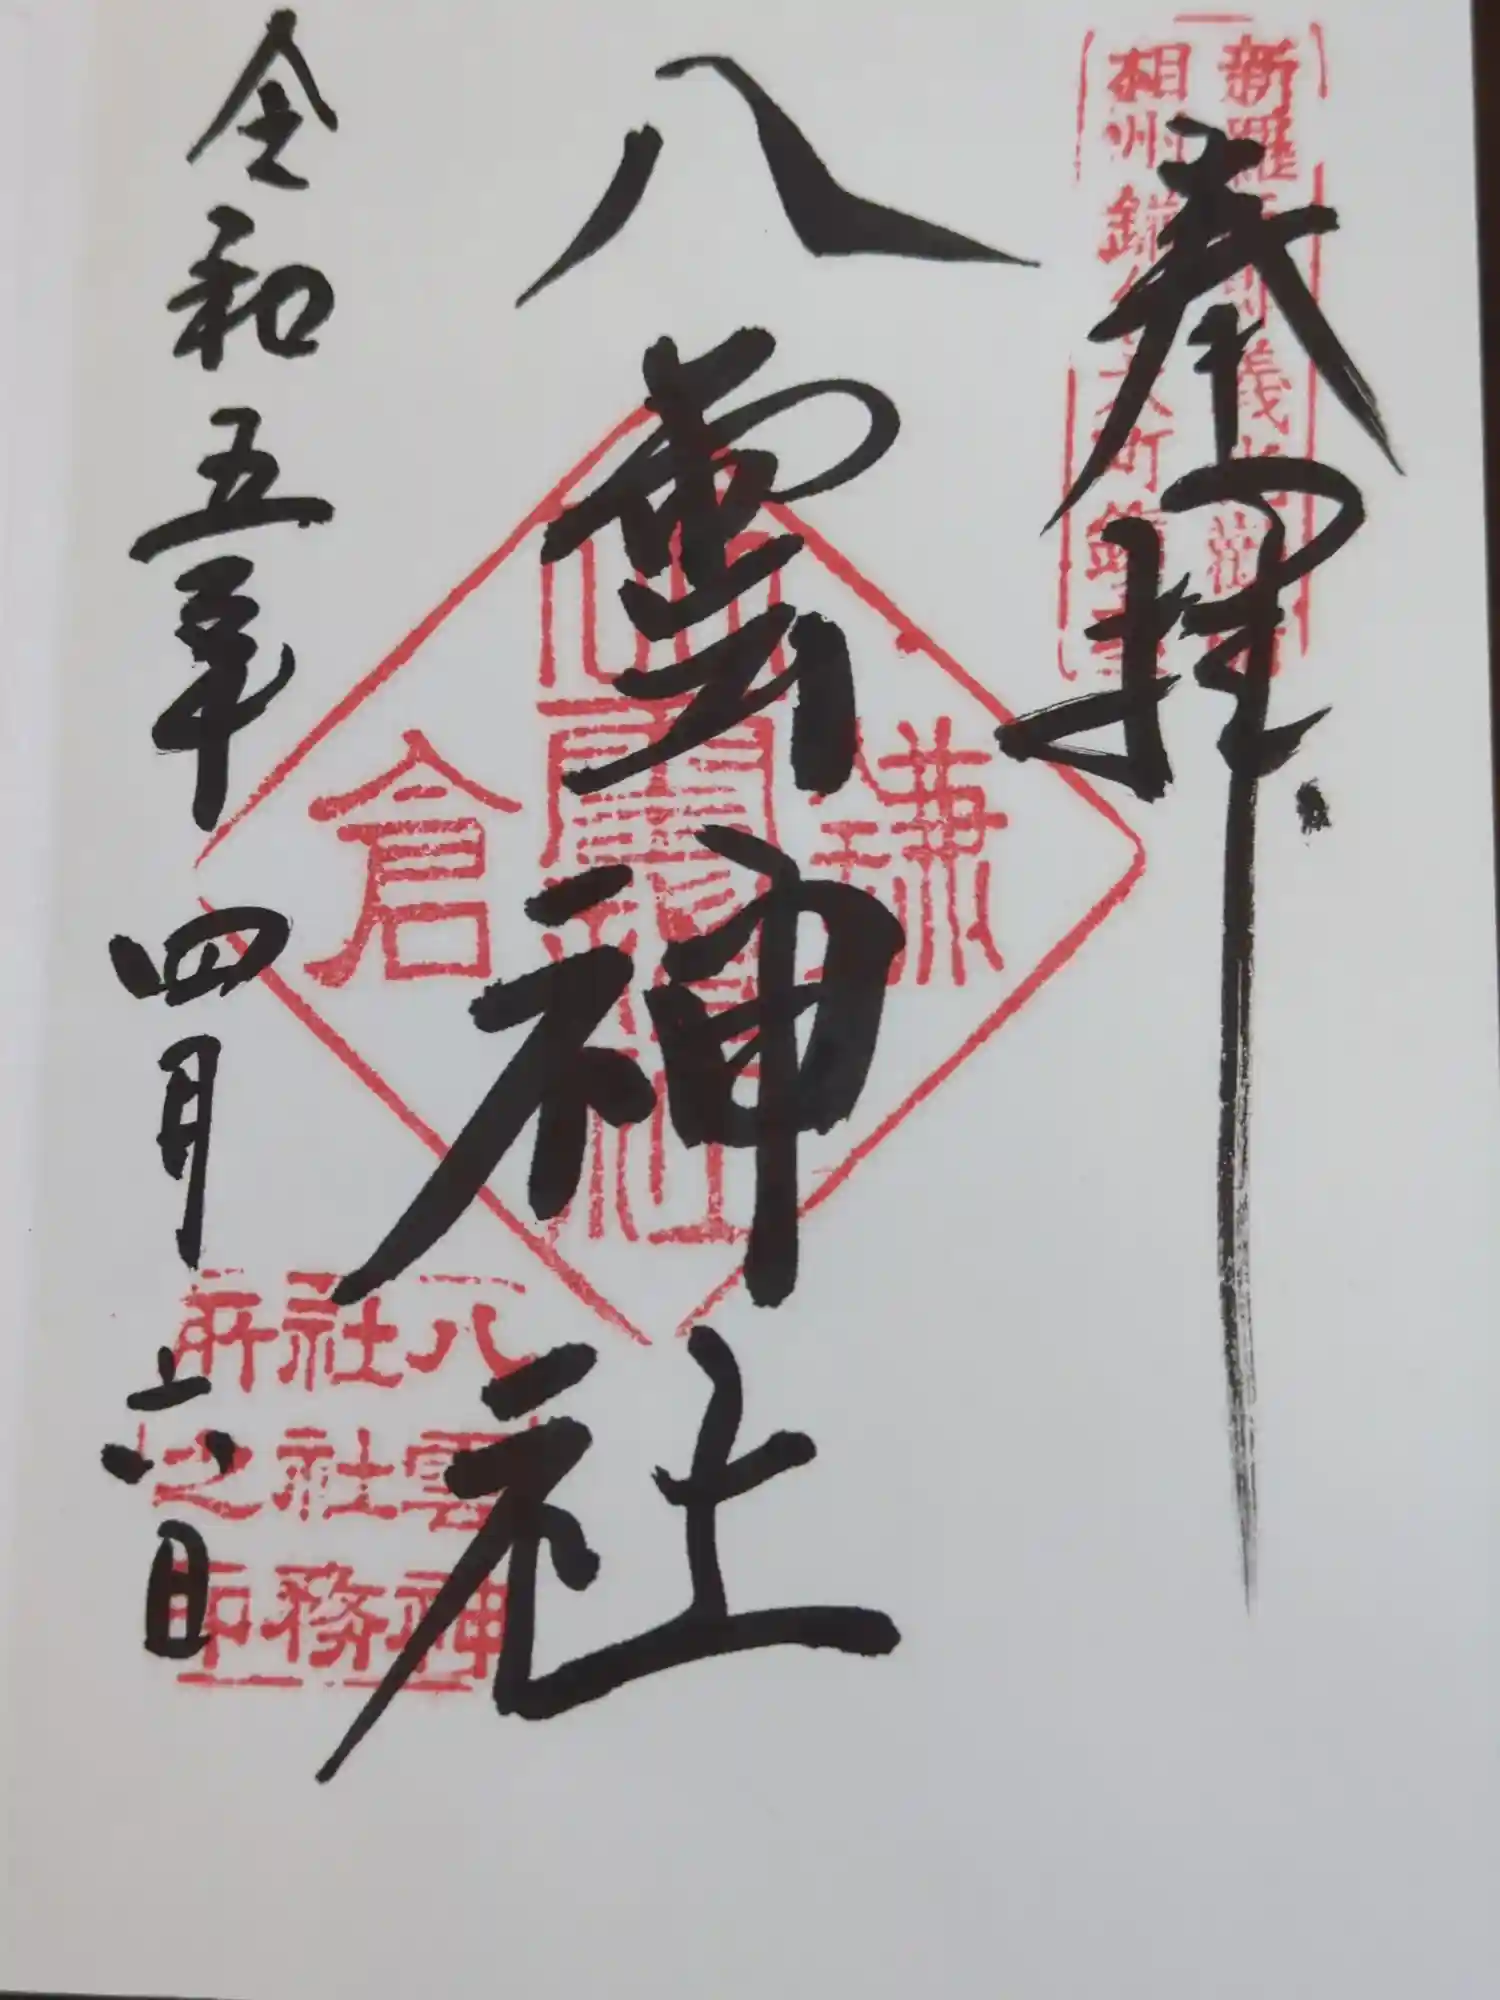 奉拝
新羅三郎義光勧請
相州鎌倉大町鎮座
八雲神社
鎌倉
令和五年四月六日
八雲神
社社務
所之印